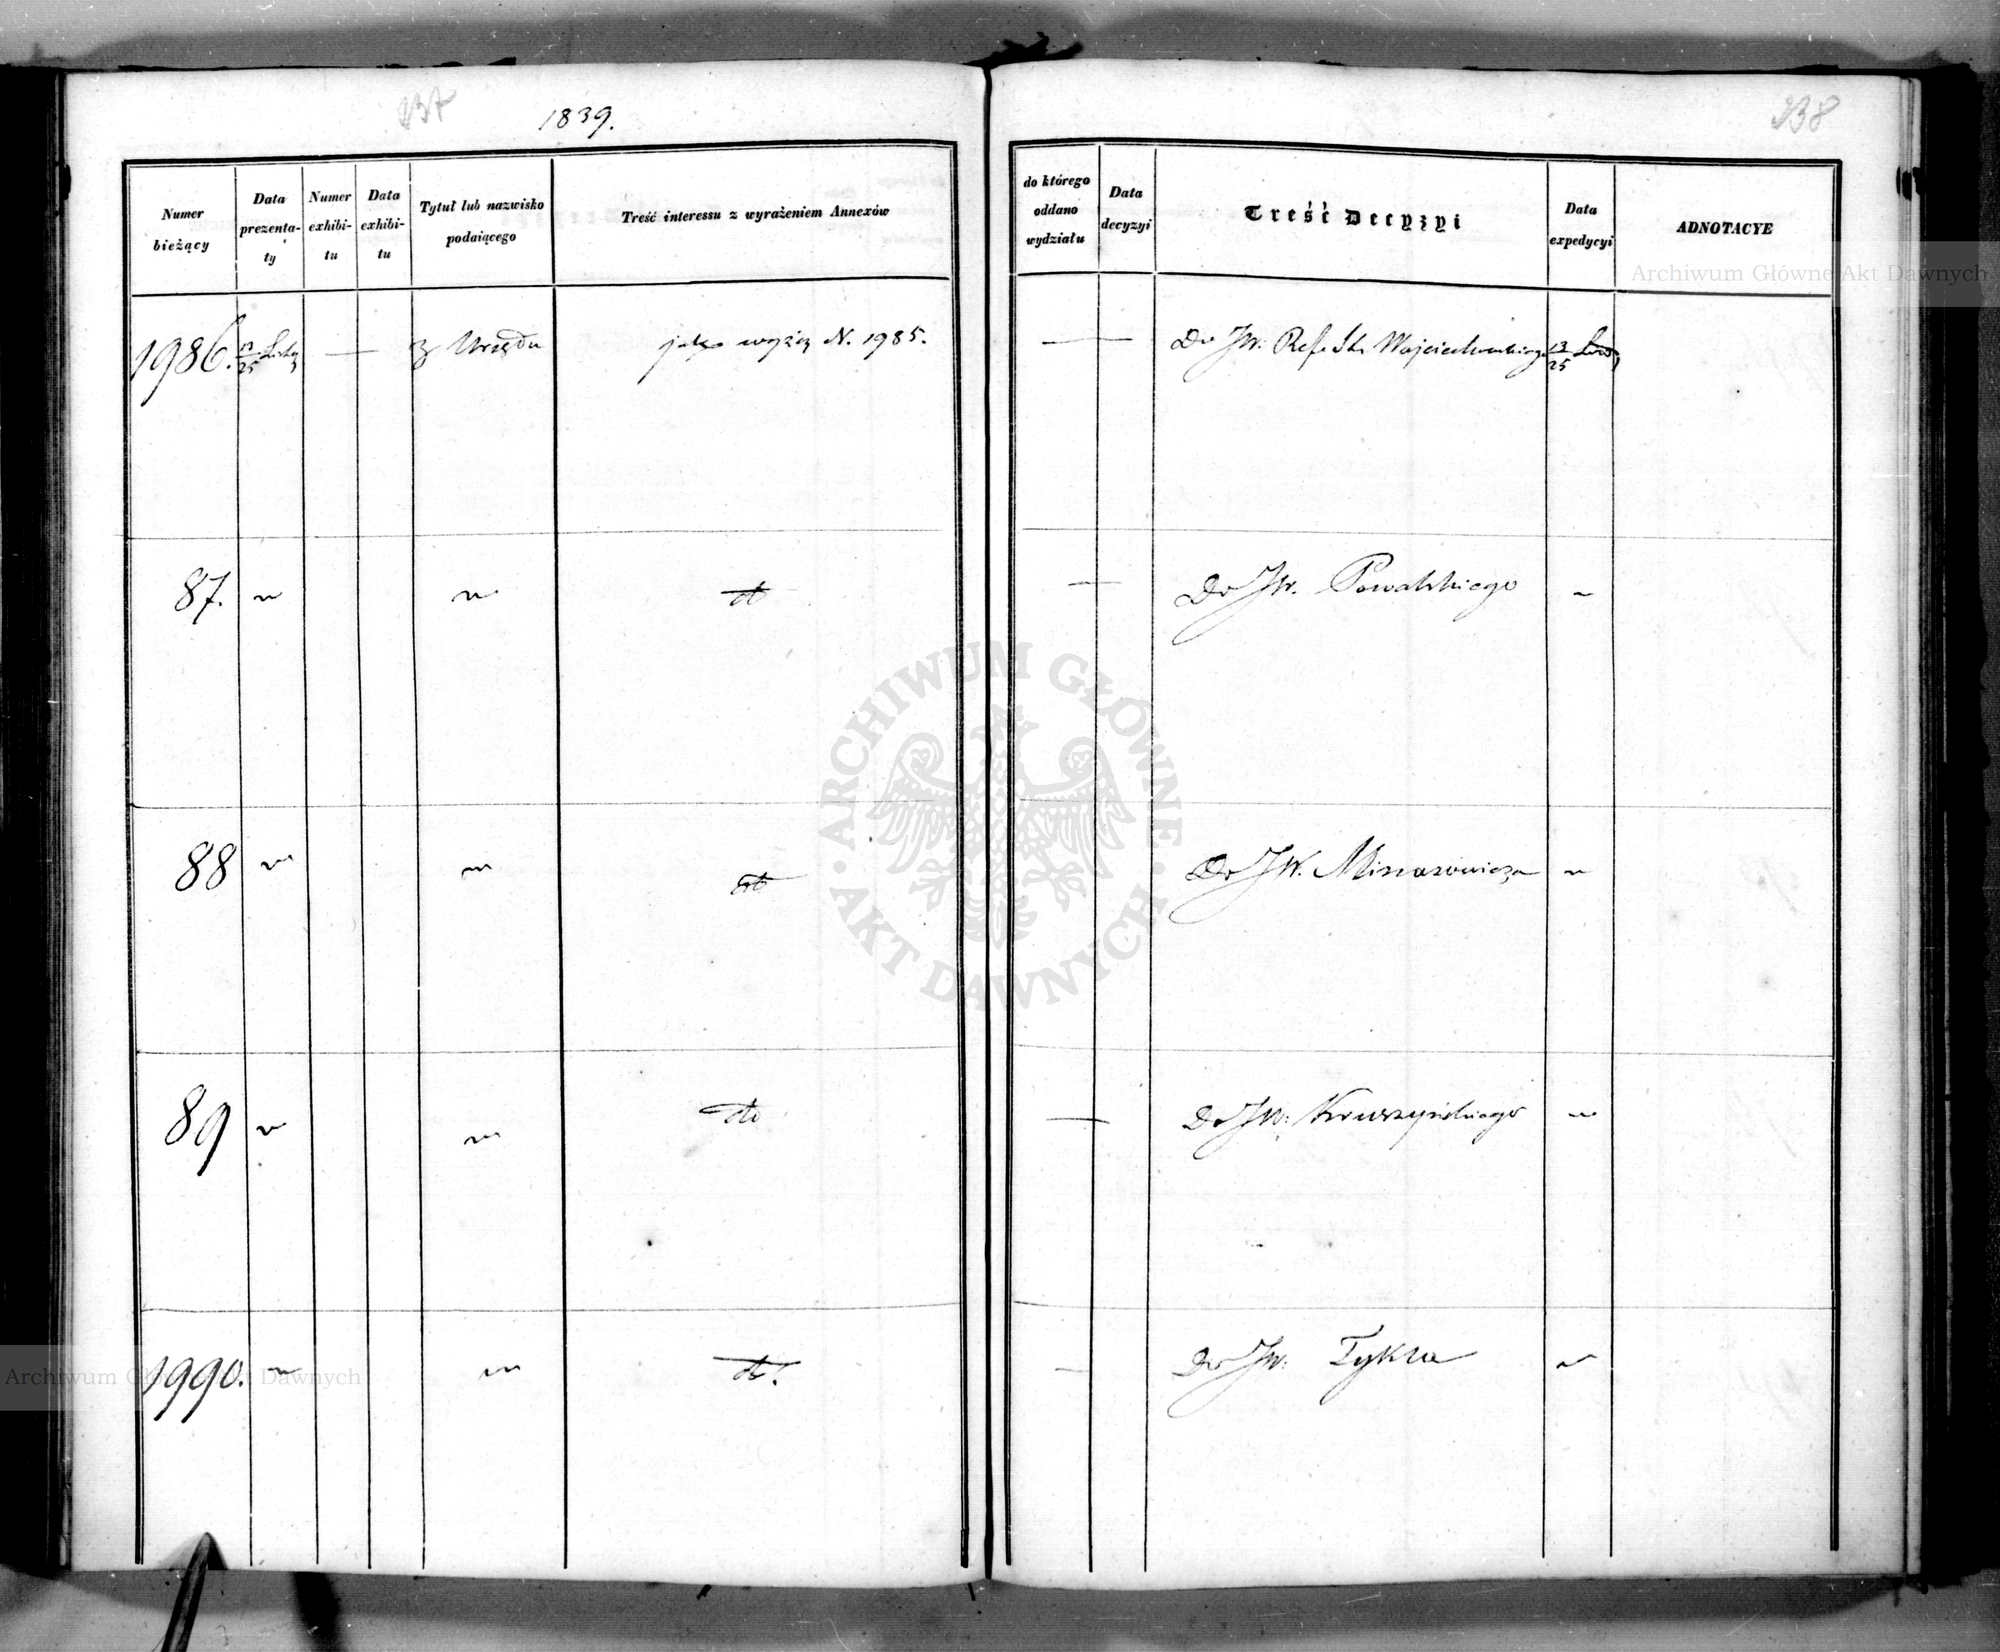 237
1839.
238
Numer bieżący
Data prezenta-ty
Numer exhibi-tu
Data exhibi-tu
Tytuł lub nazwisko podaiącego
Treść interessu z wyrażeniem Annexów
do którego oddano wydziału
Data decyzyi
Treść Decyzyi
Data expedycyi
ADNOTACYE
1986. 13/25 — z Urzędu jak wyżej N. 1985. — Do JW. Ref. St. Wojciechowskiego 13/25
87. " " dto — Do JW. Powalskiego "
88 " " dto Do JW. Minasowicza "
89 " " dto — Do JW. Kruszyńskiego "
1990. " " dto. — Do JW. Tykla "
ARCHIWUM GŁÓWNE AKT DAWNYCH
Archiwum Główne Akt Dawnych
Archiwum Główne Akt Dawnych